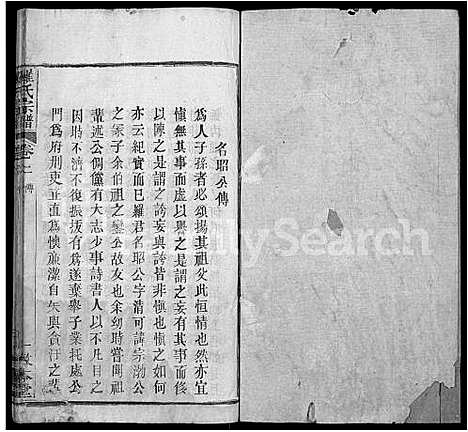 名昭公傳
爲人子孫者必頌揚其祖父此恒情也然亦宜
愼無其事而虛以與之是謂之妄有其事而後
以陳之是謂之誇妄與誇皆非愼也愼之如何
亦云紀實而已羅君名昭公字清可諱宗渤公
之家子余伯祖之變公故友也余幼時嘗聞祖
輩述公倜儻有大志少事詩書人以不凡目之
因時不濟不復振拔有爲遂棄舉子業托處公
門爲府刑吏正直爲懷廉潔自矢與貪汙之輩
羅氏宗譜
卷之
傳
一
堂
FamilySearch